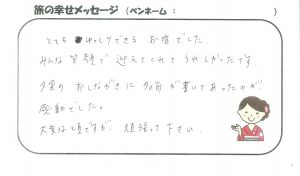 旅の幸せメッセージ (ペンネーム : )
とても ゆっくりできる お宿でした
みんな 笑顔で 迎えてくれて うれしかったです
夕食の おしながきに 名前が 書いてあったのが
感動でした。
大変な 頃ですが、頑張って 下さい